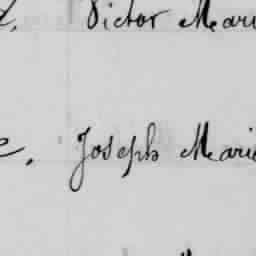 Victor Mari
Joseph Marie